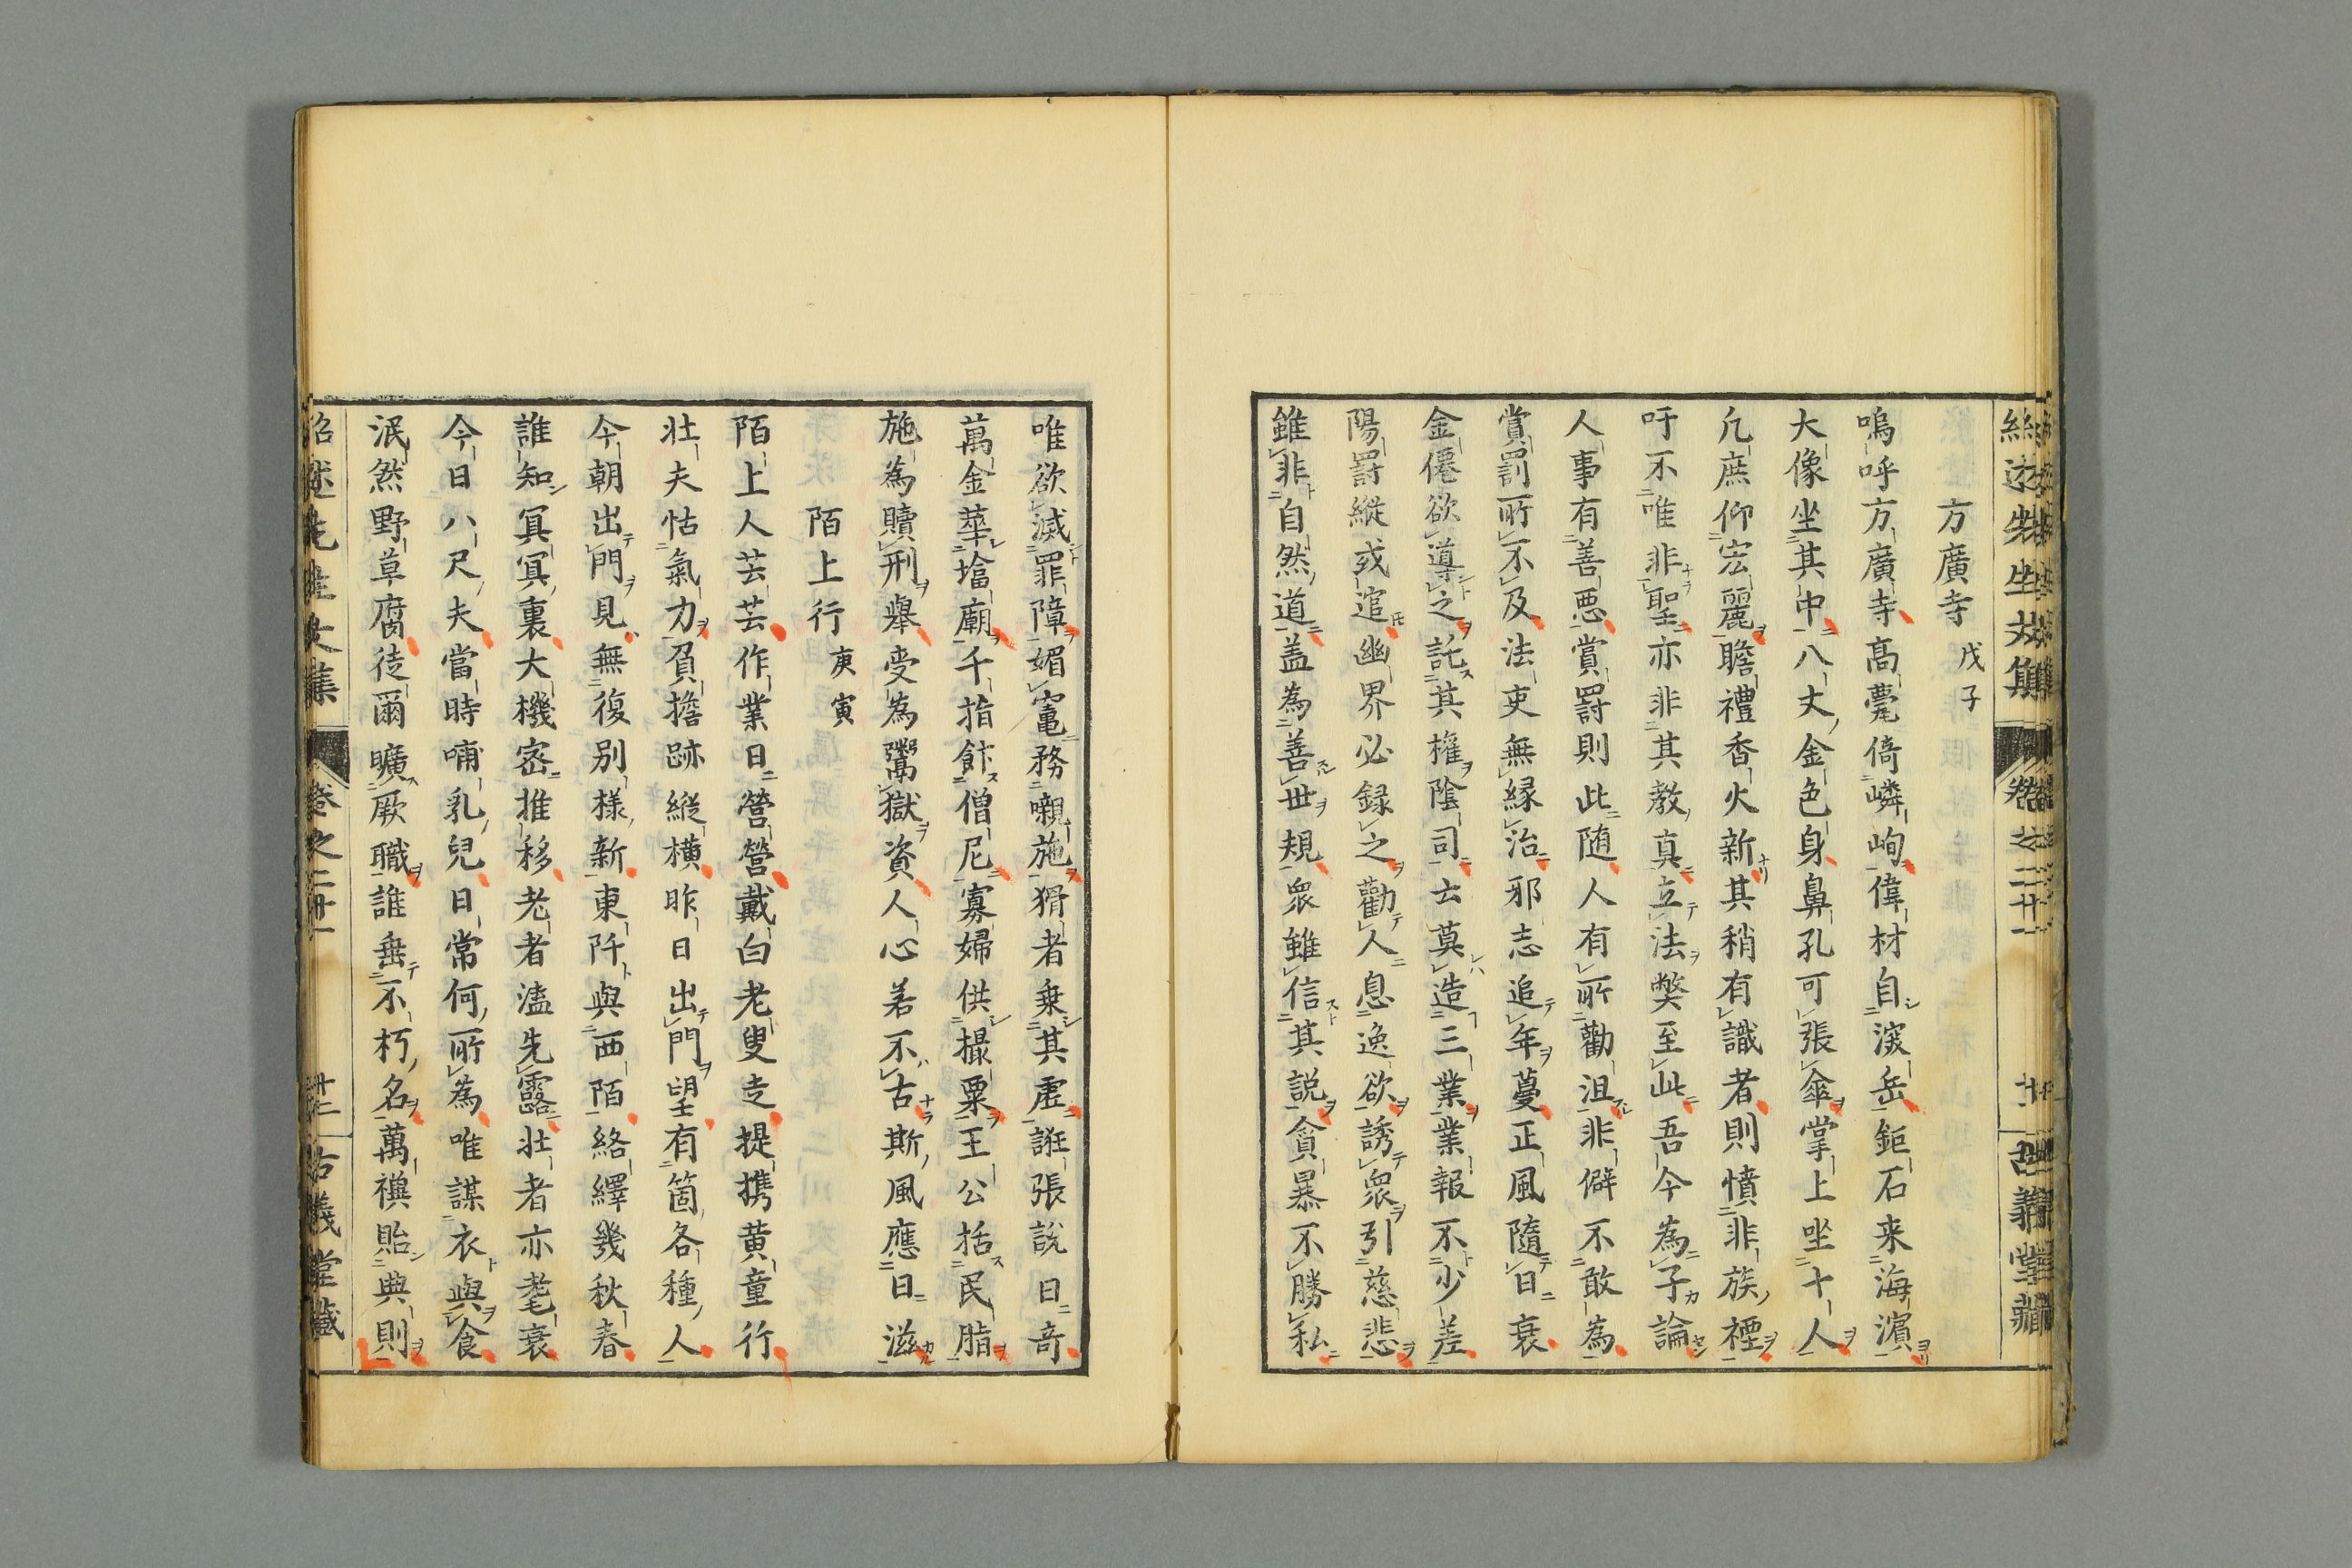 方廣寺 戊子
嗚呼方廣寺髙甍倚嶙峋偉材自深岳鉅石来海濵
大像坐其中八丈金色身鼻孔可張傘掌上坐十人
凢庶仰宏麗瞻禮香火新其稍有識者則憤非族禋
吁不唯非聖亦非其教真立法弊至此吾今為子論
人事有善惡賞罸則此随人有所勸沮非僻不敢為
賞罰所不及法吏無縁治邪志追年蔓正風隨日衰
金僊欲導之託其權陰司云莫造三業業報不少差
陽罸縱或逭幽界必録之勸人息逸欲誘衆引慈悲
雖非自然道盖為善世規衆雖信其説貪暴不勝私
唯欲滅罪障媚竈務嚫施猾者乗其虚誑張説日竒
萬金華㙮廟千指飯僧尼寡婦供撮粟王公括民脂
施為贖刑舉受為鬻獄資人心若不古斯風應日滋
陌上行 庚寅
陌上人芸芸作業日營營戴白老叟走提携黄童行
壮夫怙氣力負擔跡縦横昨日出門望有箇各種人
今朝出門見無復别様新東阡與西陌絡繹幾秋春
誰知冥冥裏大機宻推移老者溘先露壮者亦耄衰
今日八尺夫當時哺乳兒日常何所為唯謀衣與食
泯然野草腐徒爾曠厥職誰垂不朽名萬禩貽典則
紹述先生文集 卷之二十一 十二 古義堂藏